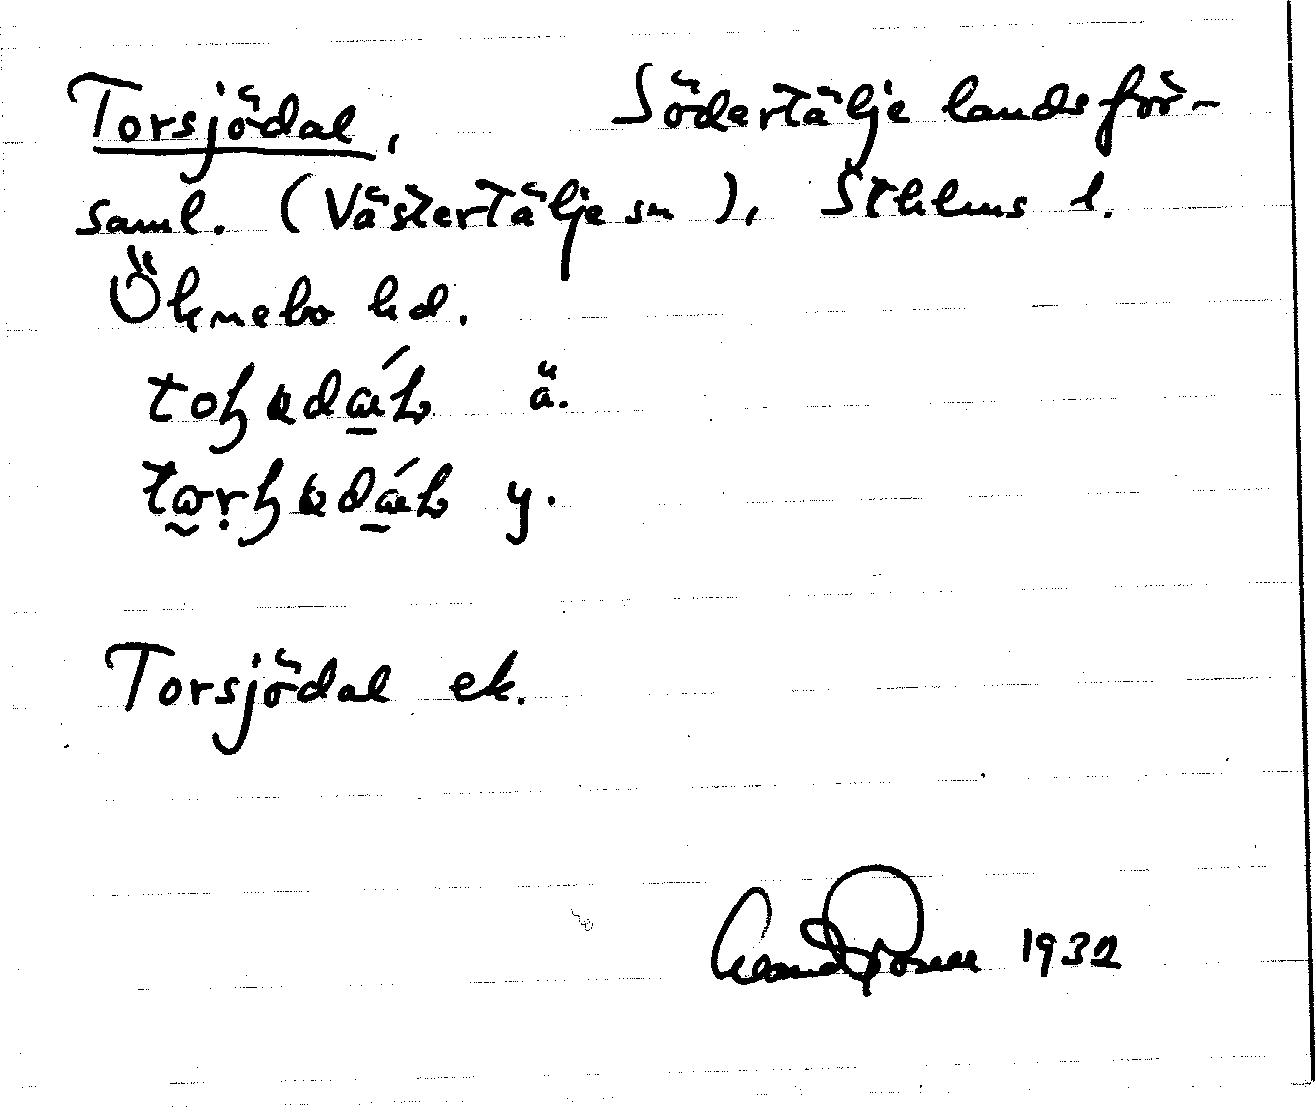 Torsjödal, Södertälje landsför-
saml. (Västertälje sn), Sthlms l.
Öknebo hd.
ä.
y.
Torsjödal ek.
1932